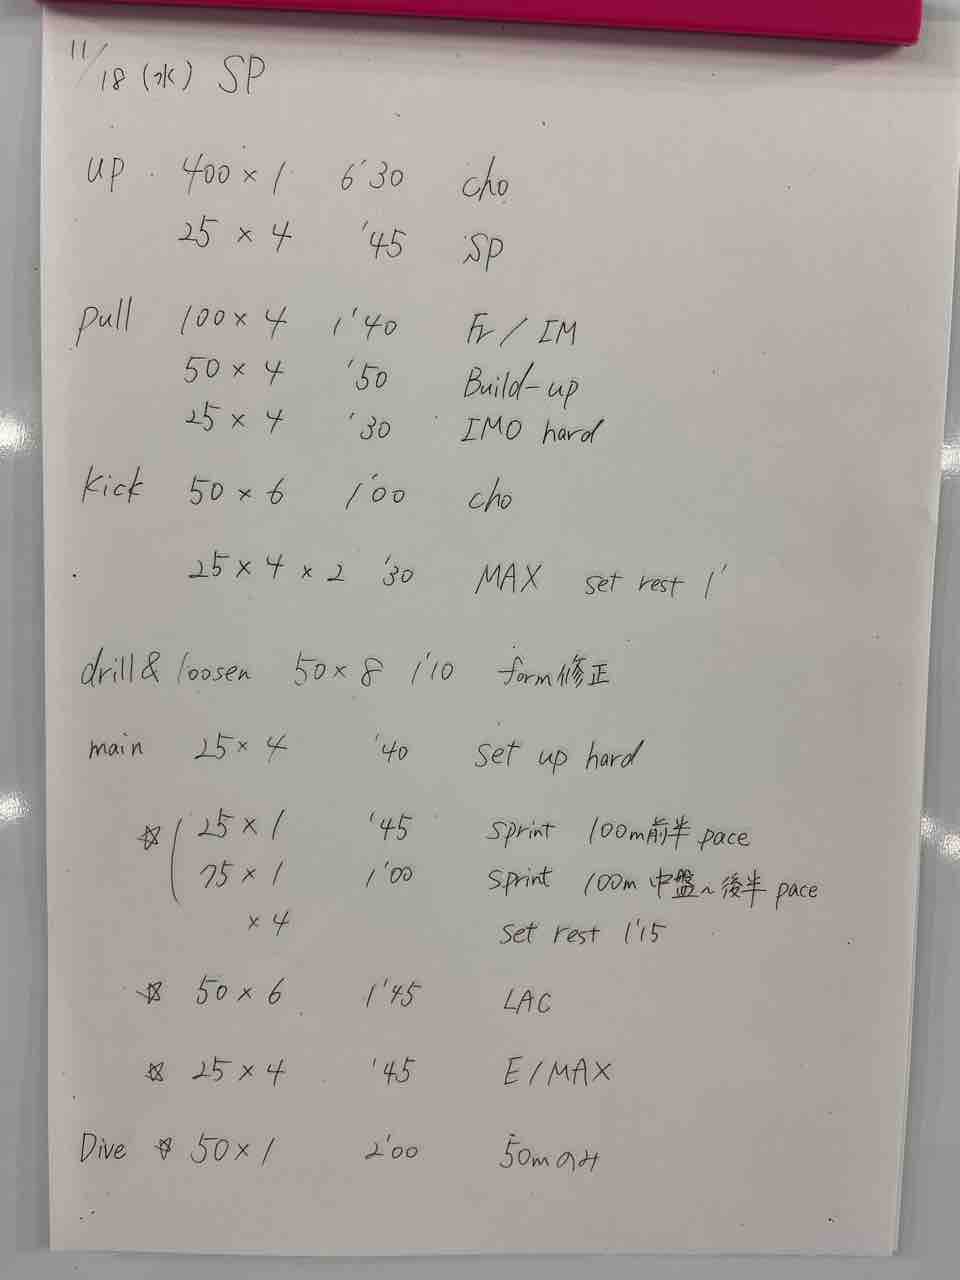 11/18 (水) SP
up 400×1 6'30 cho
25×4 '45 SP
pull 100×4 1'40 Fr/IM
50×4 '50 Build-up
25×4 '30 IMO hard
Kick 50×6 1'00 cho
25×4×2 '30 MAX set rest 1'
drill & loosen 50×8 1'10 form修正
main 25×4 '40 set up hard
☆ ( 25×1 '45 sprint 100m前半 pace
75×1 1'00 sprint 100m 中盤~後半 pace
×4 set rest 1'15
☆ 50×6 1'45 LAC
☆ 25×4 '45 E/MAX
Dive ☆ 50×1 2'00 50mのみ